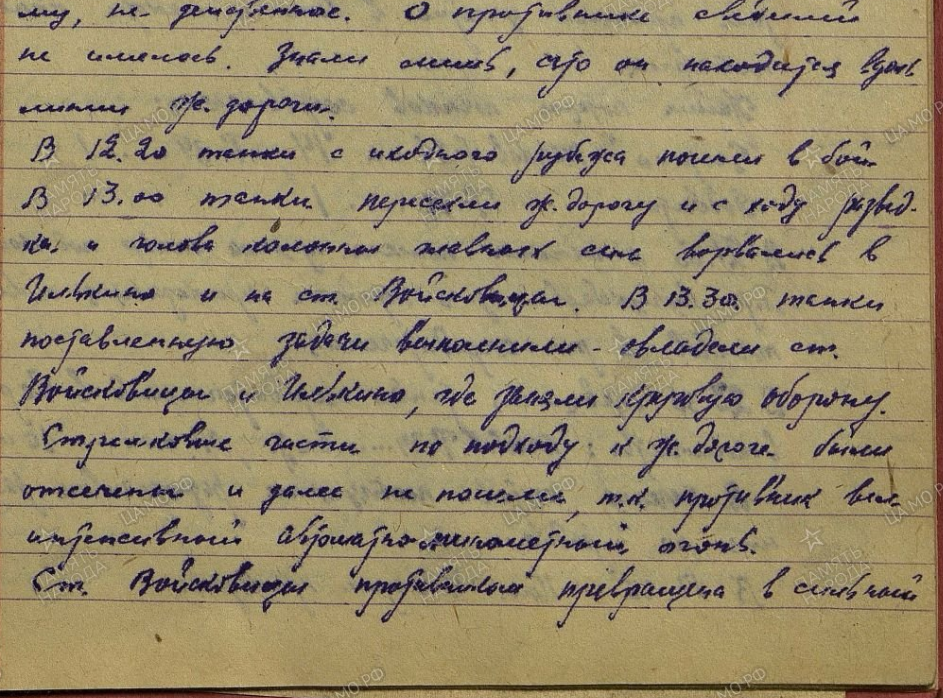 му, не действенное. О противнике сведений
не имелось. Знали лишь, что он находится вдоль
линии ж. дороги.
В 12.20 танки с исходного рубежа пошли в бой.
В 13.00 танки пересекли ж. дорогу и с ходу развед-
ка и голова колонны главных сил ворвались в
Илькино и на ст. Войсковицы. В 13.30. танки
поставленную задачу выполнили - овладели ст.
Войсковицы и Илькино, где заняли круговую оборону.
Стрелковые части по подходу к ж. дороге были
отсечены и далее не пошли, т.к. противник вел
интенсивный автоматно-минометный огонь.
Ст. Войсковицы противником превращена в сильный
ПАМЯТЬ НАРОДА
ЦАМО.РФ